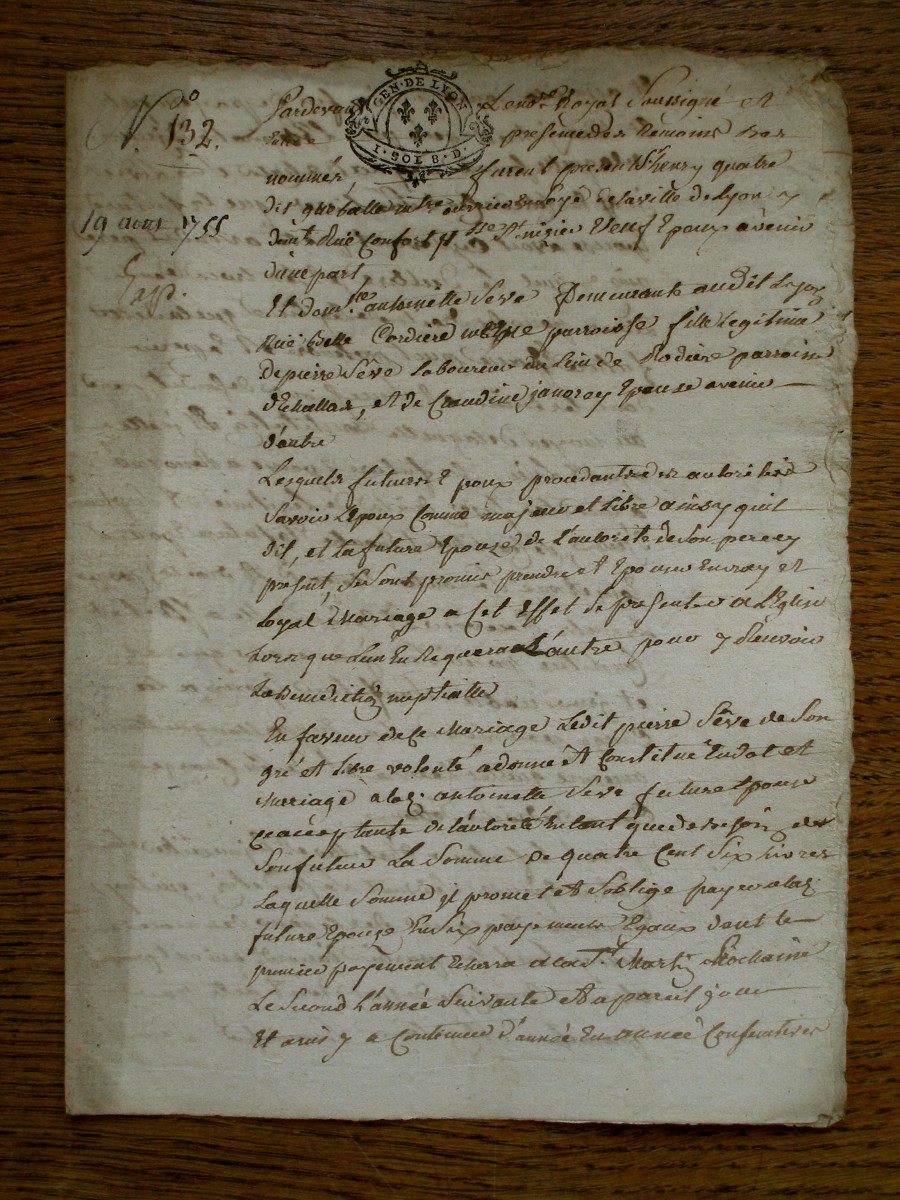 N.º 132.
19 aoust 1755
GEN · DE LYON
1 · SOL 8 · D
Pardevant Le no.re Royal Soussigné et
presence des temoins bas
nommés furent presents S.r henry quatre
dit m.tre ouvrier de la ville de Lyon y
dem.t Ruë Confort p.sse S.t Nizier Veuf Epoux avenir
d'une part
Et dem.lle antoinette Seve Demeurante audit Lyon
Ruë belle Cordiere mesme parroisse fille Legitime
de pierre Sève Laboureur du Lieu de parroisse
d'Echallas, et de Claudine janoray Epouse avenir
d'autre
Lesquels futurs Epoux procedants des autorités
Savoir L'Epoux Comme majeur et Libre ainsy quil
dit, et La future Epouse de L'autorité de Son pere cy
present, Se Sont promis prendre et Epouser En vray et
Loyal Mariage a Cet Effet Se presenter a L'Eglise
Lorsque L'un En Requerra L'autre pour y Recevoir
La Benediction nuptialle
En faveur de Ce Mariage Ledit pierre Sève de Son
gré et Libre volonté a donné et Constitué En dot et
Mariage a lad. antoinette Seve future Epouse
acceptante de l'autorité En tant que de besoin de
Son futur La Somme de quatre Cent Six Livres
Laquelle Somme il promet et S'oblige payer a lad.
future Epouse En Six payements Egaux dont le
premier payement Echerra a la S.t Martin Prochaine
Le Second L'année Suivante et a pareil jour
Et ainsi y a Continuer d'année En année Consecutives